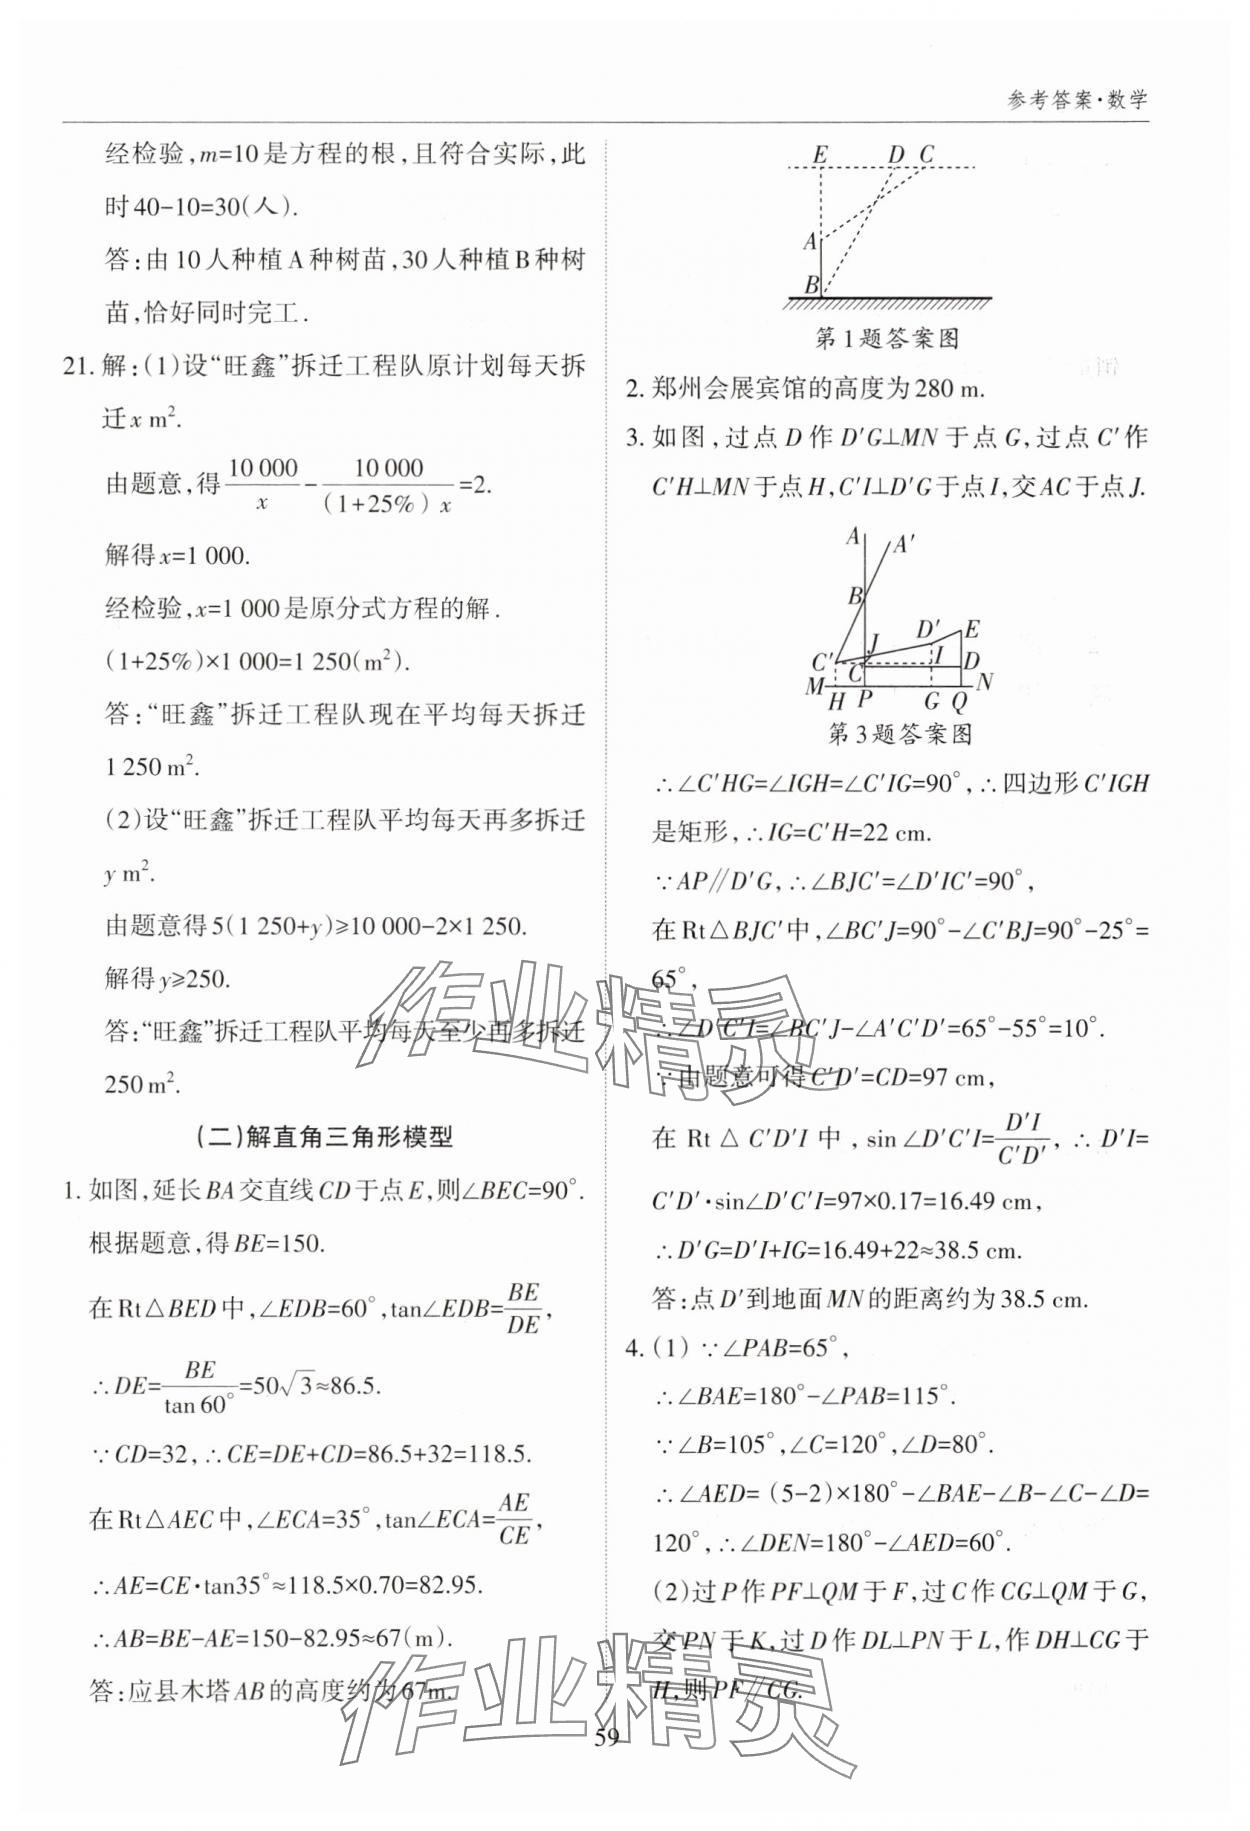 参考答案·数学
经检验,m=10是方程的根,且符合实际,此
时40-10=30(人).
答:由10人种植A种树苗,30人种植B种树
苗,恰好同时完工.
21. 解:(1)设“旺鑫”拆迁工程队原计划每天拆
迁x m².
由题意,得10 000/x-10 000/(1+25%)x=2.
解得x=1 000.
经检验,x=1 000是原分式方程的解.
(1+25%)×1 000=1 250(m²).
答:“旺鑫”拆迁工程队现在平均每天拆迁
1 250 m².
(2)设“旺鑫”拆迁工程队平均每天再多拆迁
y m².
由题意得5(1 250+y)≥10 000-2×1 250.
解得y≥250.
答:“旺鑫”拆迁工程队平均每天至少再多拆迁
250 m².
(二)解直角三角形模型
1. 如图,延长BA交直线CD于点E,则∠BEC=90°.
根据题意,得BE=150.
在Rt△BED中,∠EDB=60°,tan∠EDB=BE/DE,
∴DE=BE/tan 60°=50√3≈86.5.
∵CD=32,∴CE=DE+CD=86.5+32=118.5.
在Rt△AEC中,∠ECA=35°,tan∠ECA=AE/CE,
∴AE=CE·tan35°≈118.5×0.70=82.95.
∴AB=BE-AE=150-82.95≈67(m).
答:应县木塔AB的高度约为67m.
E D C
A
B
第1题答案图
2. 郑州会展宾馆的高度为280 m.
3. 如图,过点D作D′G⊥MN于点G,过点C′作
C′H⊥MN于点H,C′I⊥D′G于点I,交AC于点J.
A A′
B
D′ E
C′ J I
C D
M H P G Q N
第3题答案图
∴∠C′HG=∠IGH=∠C′IG=90°,∴四边形C′IGH
是矩形,∴IG=C′H=22 cm.
∵AP∥D′G,∴∠BJC′=∠D′IC′=90°,
在Rt△BJC′中,∠BC′J=90°-∠C′BJ=90°-25°=
65°,
∴∠D′C′I=∠BC′J-∠A′C′D′=65°-55°=10°.
∵由题意可得C′D′=CD=97 cm,
在 Rt △ C′D′I 中, sin ∠D′C′I=D′I/C′D′, ∴ D′I=
C′D′·sin∠D′C′I=97×0.17=16.49 cm,
∴D′G=D′I+IG=16.49+22≈38.5 cm.
答:点D′到地面MN的距离约为38.5 cm.
4. (1) ∵∠PAB=65°,
∴∠BAE=180°-∠PAB=115°.
∵∠B=105°,∠C=120°,∠D=80°.
∴∠AED= (5-2)×180°-∠BAE-∠B-∠C-∠D=
120°,∴∠DEN=180°-∠AED=60°.
(2)过P作PF⊥QM于F,过C作CG⊥QM于G,
交PN于K,过D作DL⊥PN于L,作DH⊥CG于
H,则PF∥CG.
59
作业精灵
作业精灵